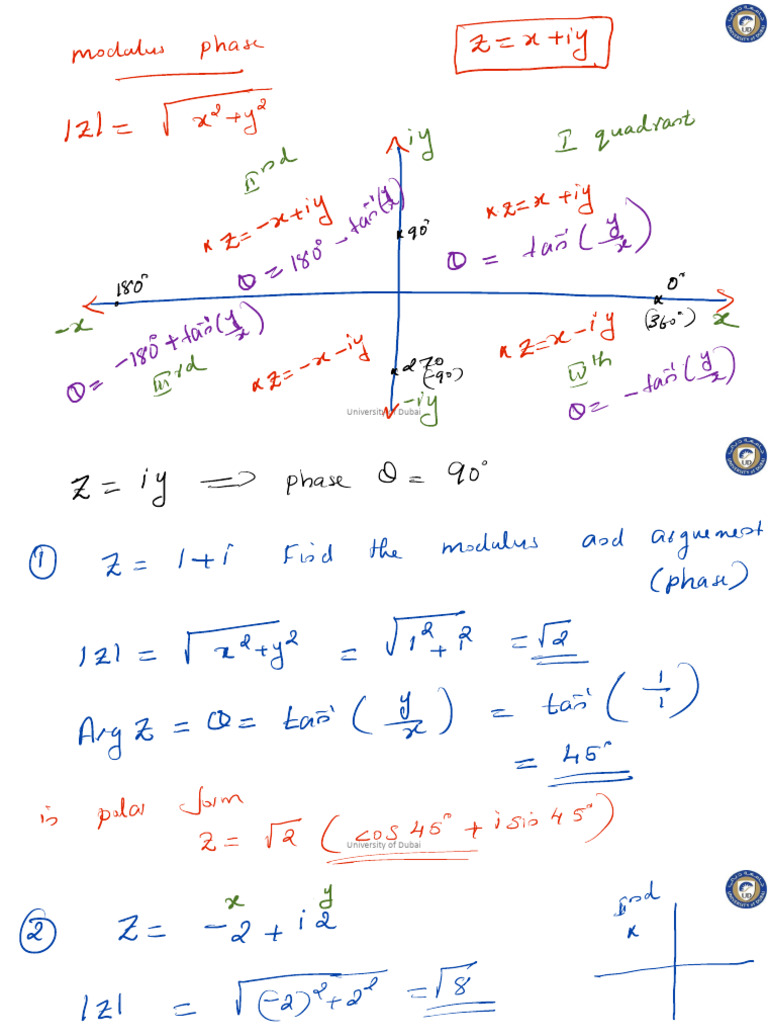 modulus phase
z = x + iy
|z| = √x²+y²
iy
I quadrant
IInd
× z = -x + iy
× z = x + iy
θ = 180° - tan⁻¹(y/x)
θ = tan⁻¹(y/x)
90°
180°
0°
-x
(360°)
x
θ = -180° + tan⁻¹(y/x)
IIIrd
× z = -x - iy
× z = x - iy
270
(-90)
IVth
θ = -tan⁻¹(y/x)
-iy
University of Dubai
z = iy ⇒ phase θ = 90°
① z = 1+i Find the modulus and arguement
(phase)
|z| = √x²+y² = √1²+1² = √2
Arg z = θ = tan⁻¹(y/x) = tan⁻¹(1/1)
= 45°
in polar form
z = √2 (cos 45° + i sin 45°)
University of Dubai
x y
② z = -2 + i 2
IInd
×
|z| = √(-2)²+2² = √8